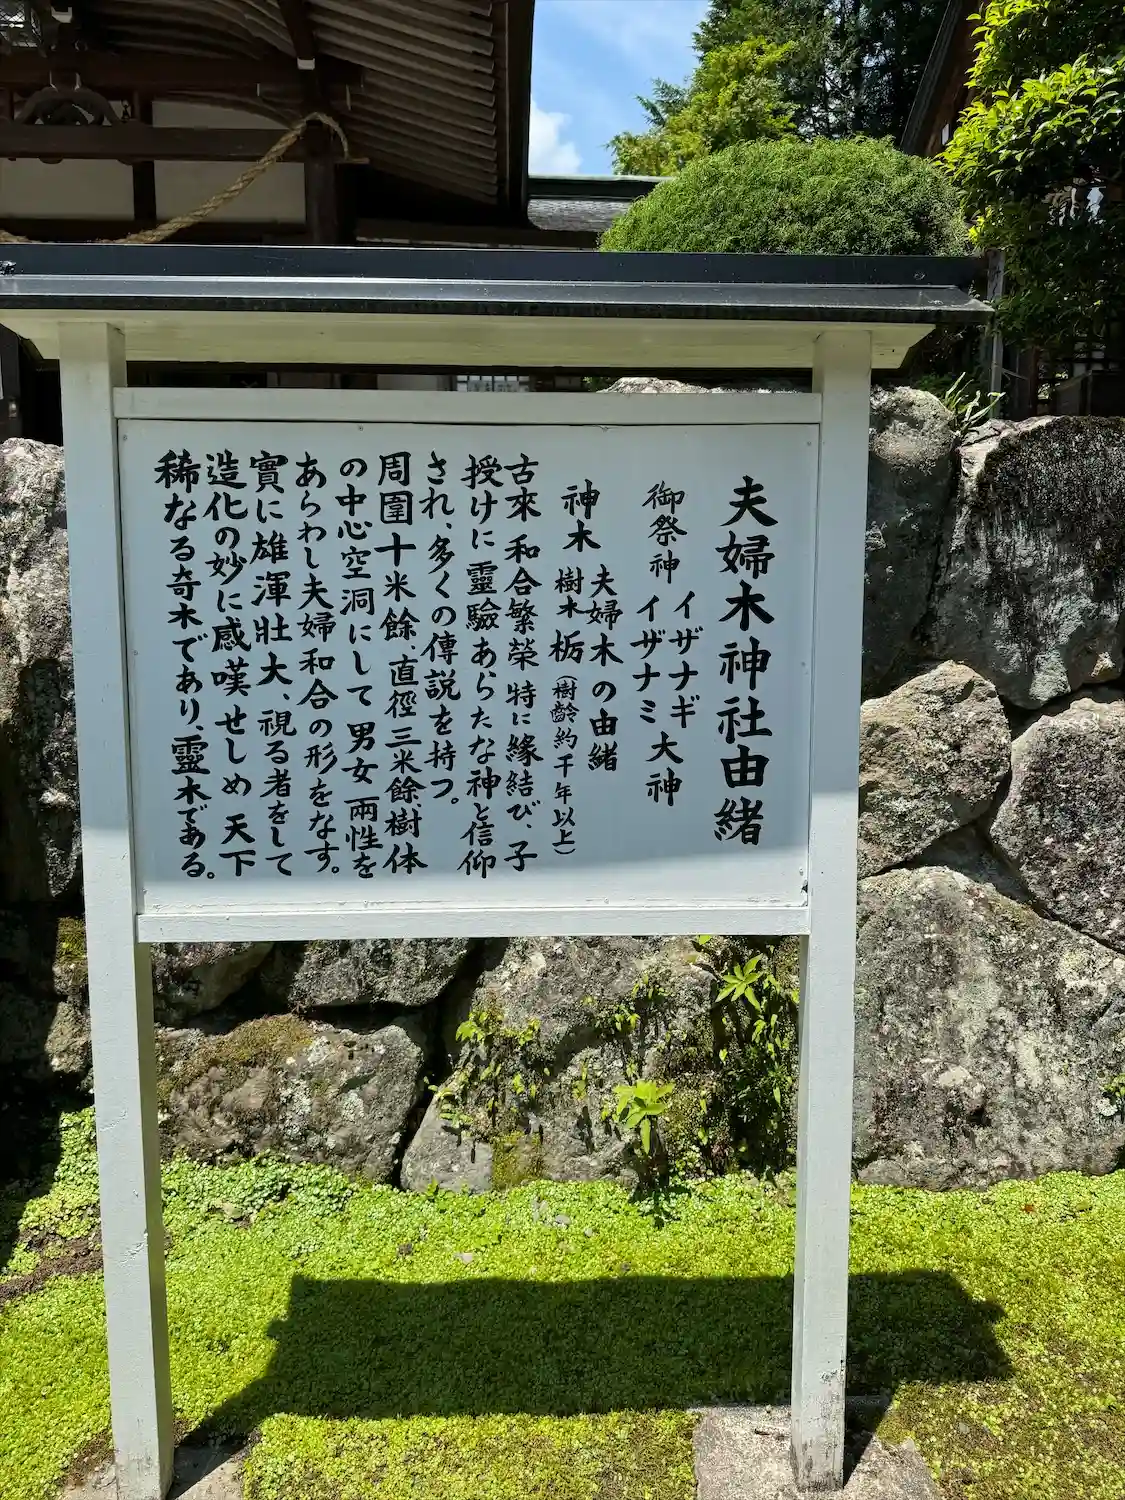 夫婦木神社由緒
御祭神 イザナギ イザナミ 大神
夫婦木の由緒
神木 樹木 栃(樹齢約千年以上)
古來和合繁榮特に縁結び、子
授けに靈驗あらたな神と信仰
され、多くの傳説を持つ。
周圍十米餘、直徑三米餘、樹体
の中心空洞にして男女両性を
あらわし夫婦和合の形をなす。
實に雄渾壯大、視る者をして
造化の妙に感嘆せしめ天下
稀なる奇木であり、靈木である。